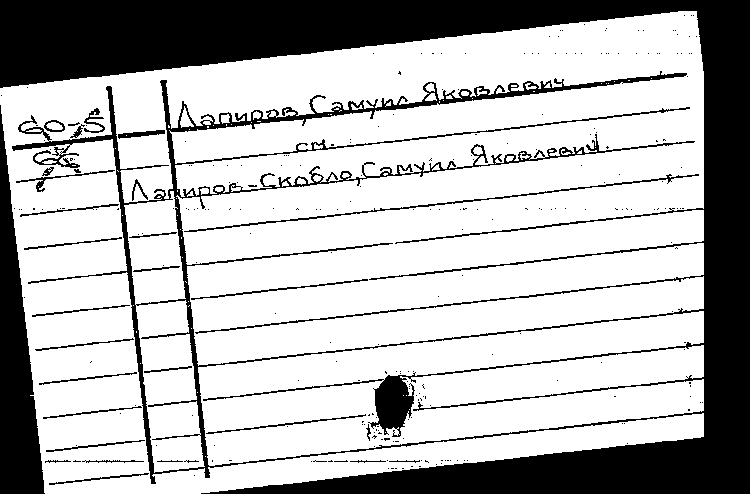 60-5
Лапиров, Самуил Яковлевич
см.
Лапиров-Скобло, Самуил Яковлевич.